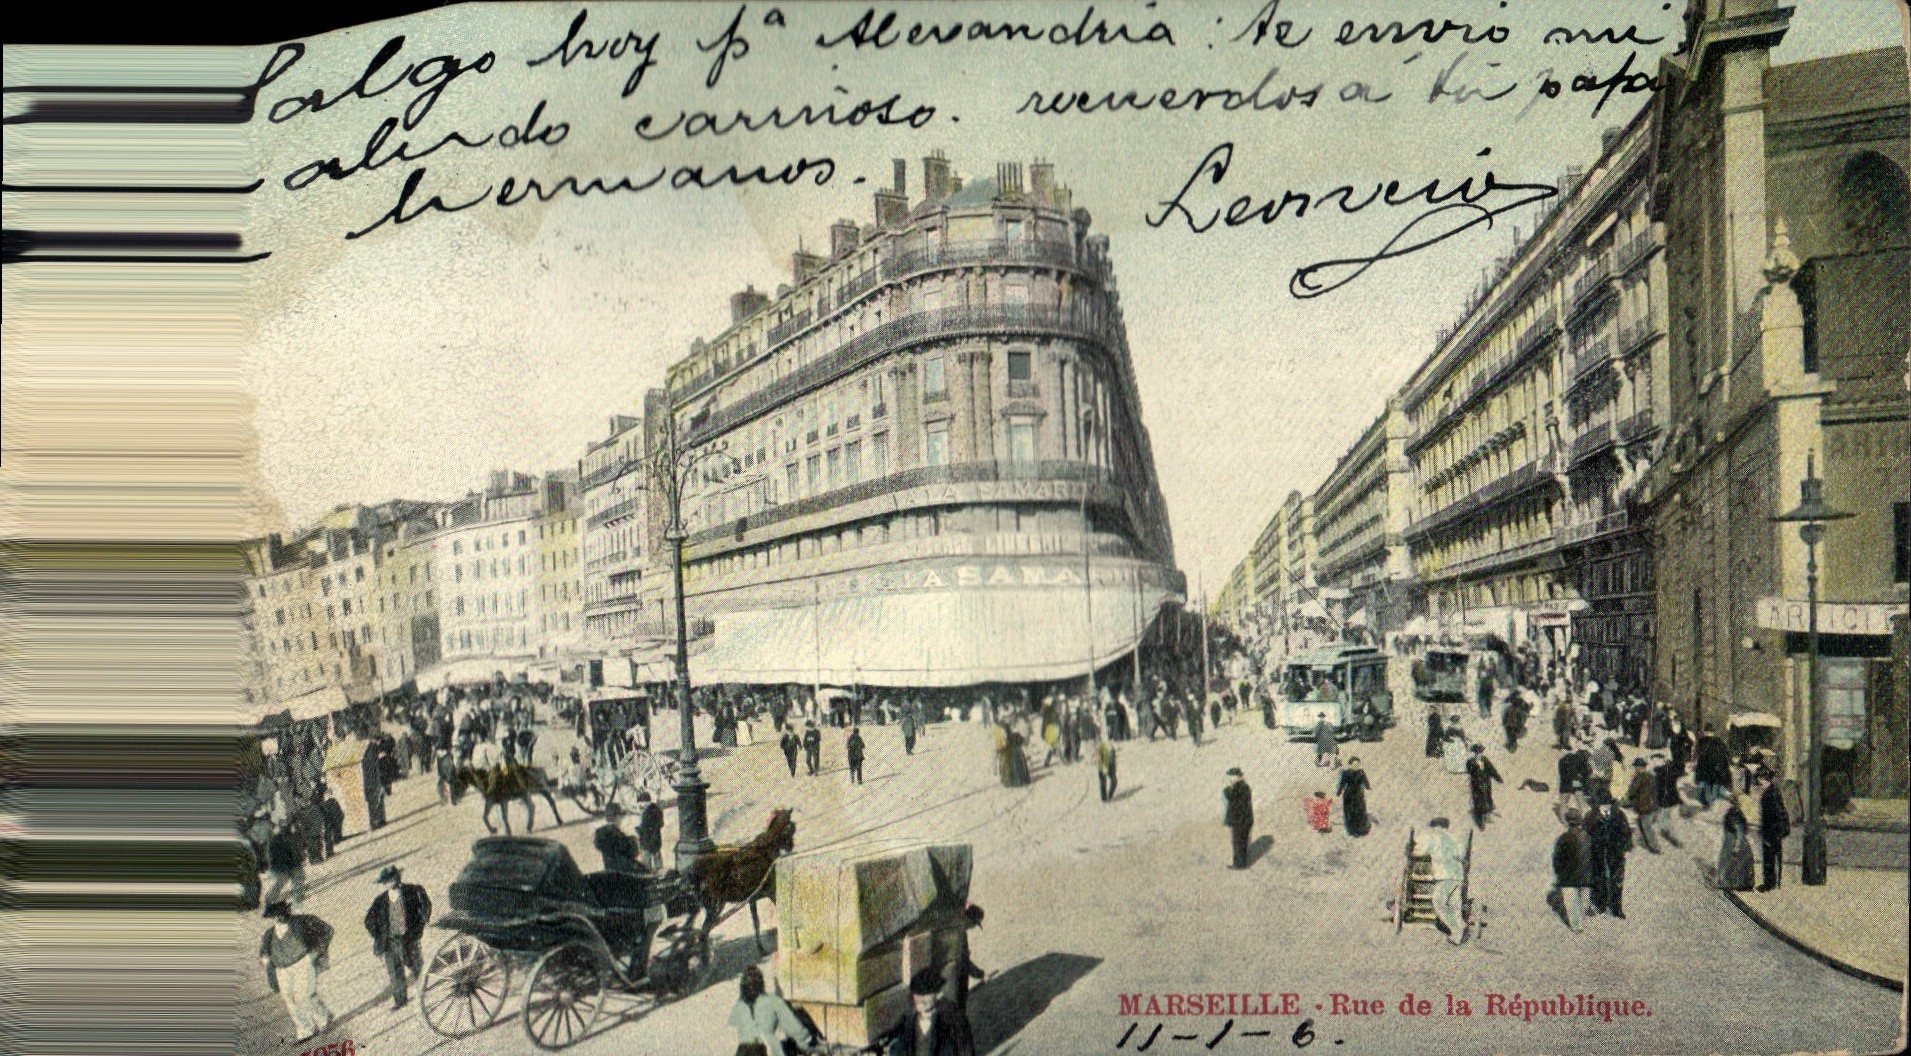 Salgo hoy pª Alexandria : te envio mi
saludo cariñoso. recuerdos á tu papa
hermanos.
Leoncio
A LA SAMAR
LA SAMA
MARSEILLE - Rue de la République.
11-1-6.